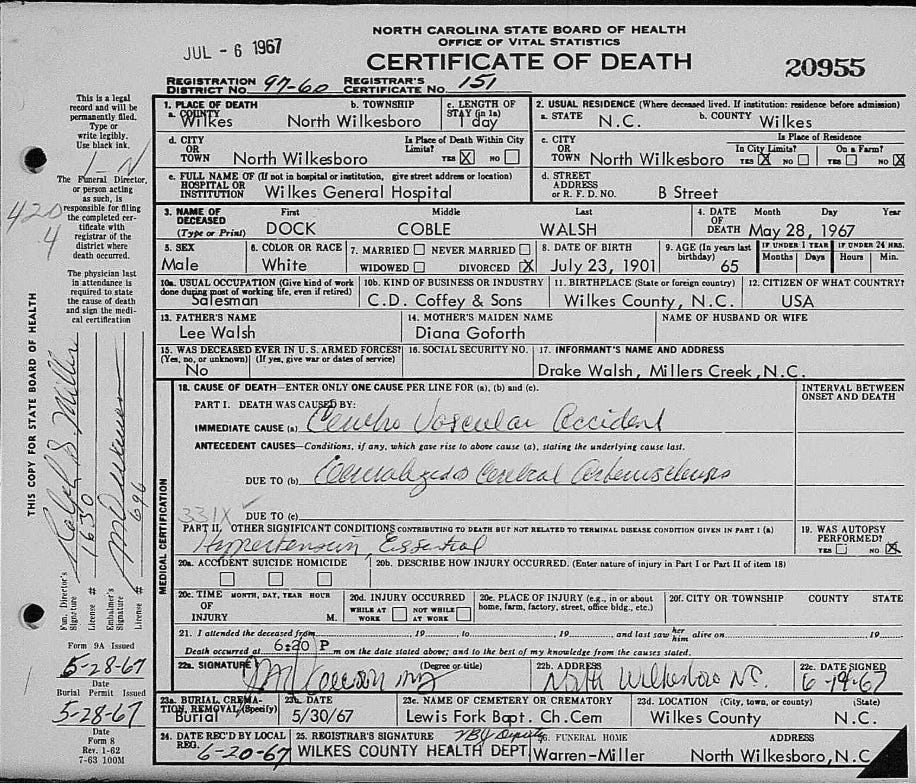 NORTH CAROLINA STATE BOARD OF HEALTH
OFFICE OF VITAL STATISTICS
JUL - 6 1967
CERTIFICATE OF DEATH
20955
REGISTRATION DISTRICT NO. 97-60 REGISTRAR'S CERTIFICATE NO. 151
This is a legal
record and will be
permanently filed.
Type or
write legibly.
Use black ink.
1-N
The Funeral Director,
or person acting
as such, is
responsible for filing
the completed cer-
tificate with
registrar of the
district where
death occurred.
420
4
The physician last
in attendance is
required to state
the cause of death
and sign the medi-
cal certification
THIS COPY FOR STATE BOARD OF HEALTH
Fun. Director's Signature Ralph S. Miller
License # 1630
Embalmer's Signature
License # 696
Form 9A Issued
5-28-67
Date
Burial Permit Issued
5-28-67
Date
Form 8
Rev. 1-62
7-63 100M
1. PLACE OF DEATH a. COUNTY Wilkes b. TOWNSHIP North Wilkesboro c. LENGTH OF STAY (in 1a) 1 day
2. USUAL RESIDENCE (Where deceased lived. If institution: residence before admission)
a. STATE N.C. b. COUNTY Wilkes
d. CITY OR TOWN North Wilkesboro Is Place of Death Within City Limits? YES X NO
c. CITY OR TOWN North Wilkesboro Is Place of Residence In City Limits? YES X NO On a Farm? YES NO X
e. FULL NAME OF (If not in hospital or institution, give street address or location) HOSPITAL OR INSTITUTION Wilkes General Hospital
d. STREET ADDRESS or R. F. D. NO. B Street
3. NAME OF DECEASED (Type or Print) First DOCK Middle COBLE Last WALSH
4. DATE OF DEATH Month Day Year May 28, 1967
5. SEX Male 6. COLOR OR RACE White 7. MARRIED NEVER MARRIED WIDOWED DIVORCED X
8. DATE OF BIRTH July 23, 1901 9. AGE (In years last birthday) 65 IF UNDER 1 YEAR Months Days IF UNDER 24 HRS. Hours Min.
10a. USUAL OCCUPATION (Give kind of work done during most of working life, even if retired) Salesman
10b. KIND OF BUSINESS OR INDUSTRY C.D. Coffey & Sons
11. BIRTHPLACE (State or foreign country) Wilkes County, N.C.
12. CITIZEN OF WHAT COUNTRY? USA
13. FATHER'S NAME Lee Walsh
14. MOTHER'S MAIDEN NAME Diana Goforth
NAME OF HUSBAND OR WIFE
15. WAS DECEASED EVER IN U.S. ARMED FORCES? (Yes, no, or unknown) (If yes, give war or dates of service) No
16. SOCIAL SECURITY NO.
17. INFORMANT'S NAME AND ADDRESS Drake Walsh, Millers Creek, N.C.
MEDICAL CERTIFICATION
18. CAUSE OF DEATH—ENTER ONLY ONE CAUSE PER LINE FOR (a), (b) and (c).
INTERVAL BETWEEN ONSET AND DEATH
PART I. DEATH WAS CAUSED BY:
IMMEDIATE CAUSE (a) Vascular Accident
ANTECEDENT CAUSES—Conditions, if any, which gave rise to above cause (a), stating the underlying cause last.
DUE TO (b) Generalized Cerebral Arteriosclerosis
DUE TO (c)
331X
PART II. OTHER SIGNIFICANT CONDITIONS CONTRIBUTING TO DEATH BUT NOT RELATED TO TERMINAL DISEASE CONDITION GIVEN IN PART I (a)
Hypertension, Essential
19. WAS AUTOPSY PERFORMED? YES NO X
20a. ACCIDENT SUICIDE HOMICIDE
20b. DESCRIBE HOW INJURY OCCURRED. (Enter nature of injury in Part I or Part II of item 18)
20c. TIME OF INJURY MONTH, DAY, YEAR HOUR M.
20d. INJURY OCCURRED WHILE AT WORK NOT WHILE AT WORK
20e. PLACE OF INJURY (e.g., in or about home, farm, factory, street, office bldg., etc.)
20f. CITY OR TOWNSHIP COUNTY STATE
21. I attended the deceased from 19 , to 19 , and last saw her him alive on 19
Death occurred at 6:20 P m on the date stated above; and to the best of my knowledge from the causes stated.
22a. SIGNATURE (Degree or title)
22b. ADDRESS North Wilkesboro N.C.
22c. DATE SIGNED 6-19-67
23a. BURIAL, CREMATION, REMOVAL (Specify) Burial
23b. DATE 5/30/67
23c. NAME OF CEMETERY OR CREMATORY Lewis Fork Bapt. Ch. Cem
23d. LOCATION (City, town, or county) (State) Wilkes County N.C.
24. DATE REC'D BY LOCAL REG. 6-20-67
25. REGISTRAR'S SIGNATURE WILKES COUNTY HEALTH DEPT.
26. FUNERAL HOME Warren-Miller ADDRESS North Wilkesboro, N.C.